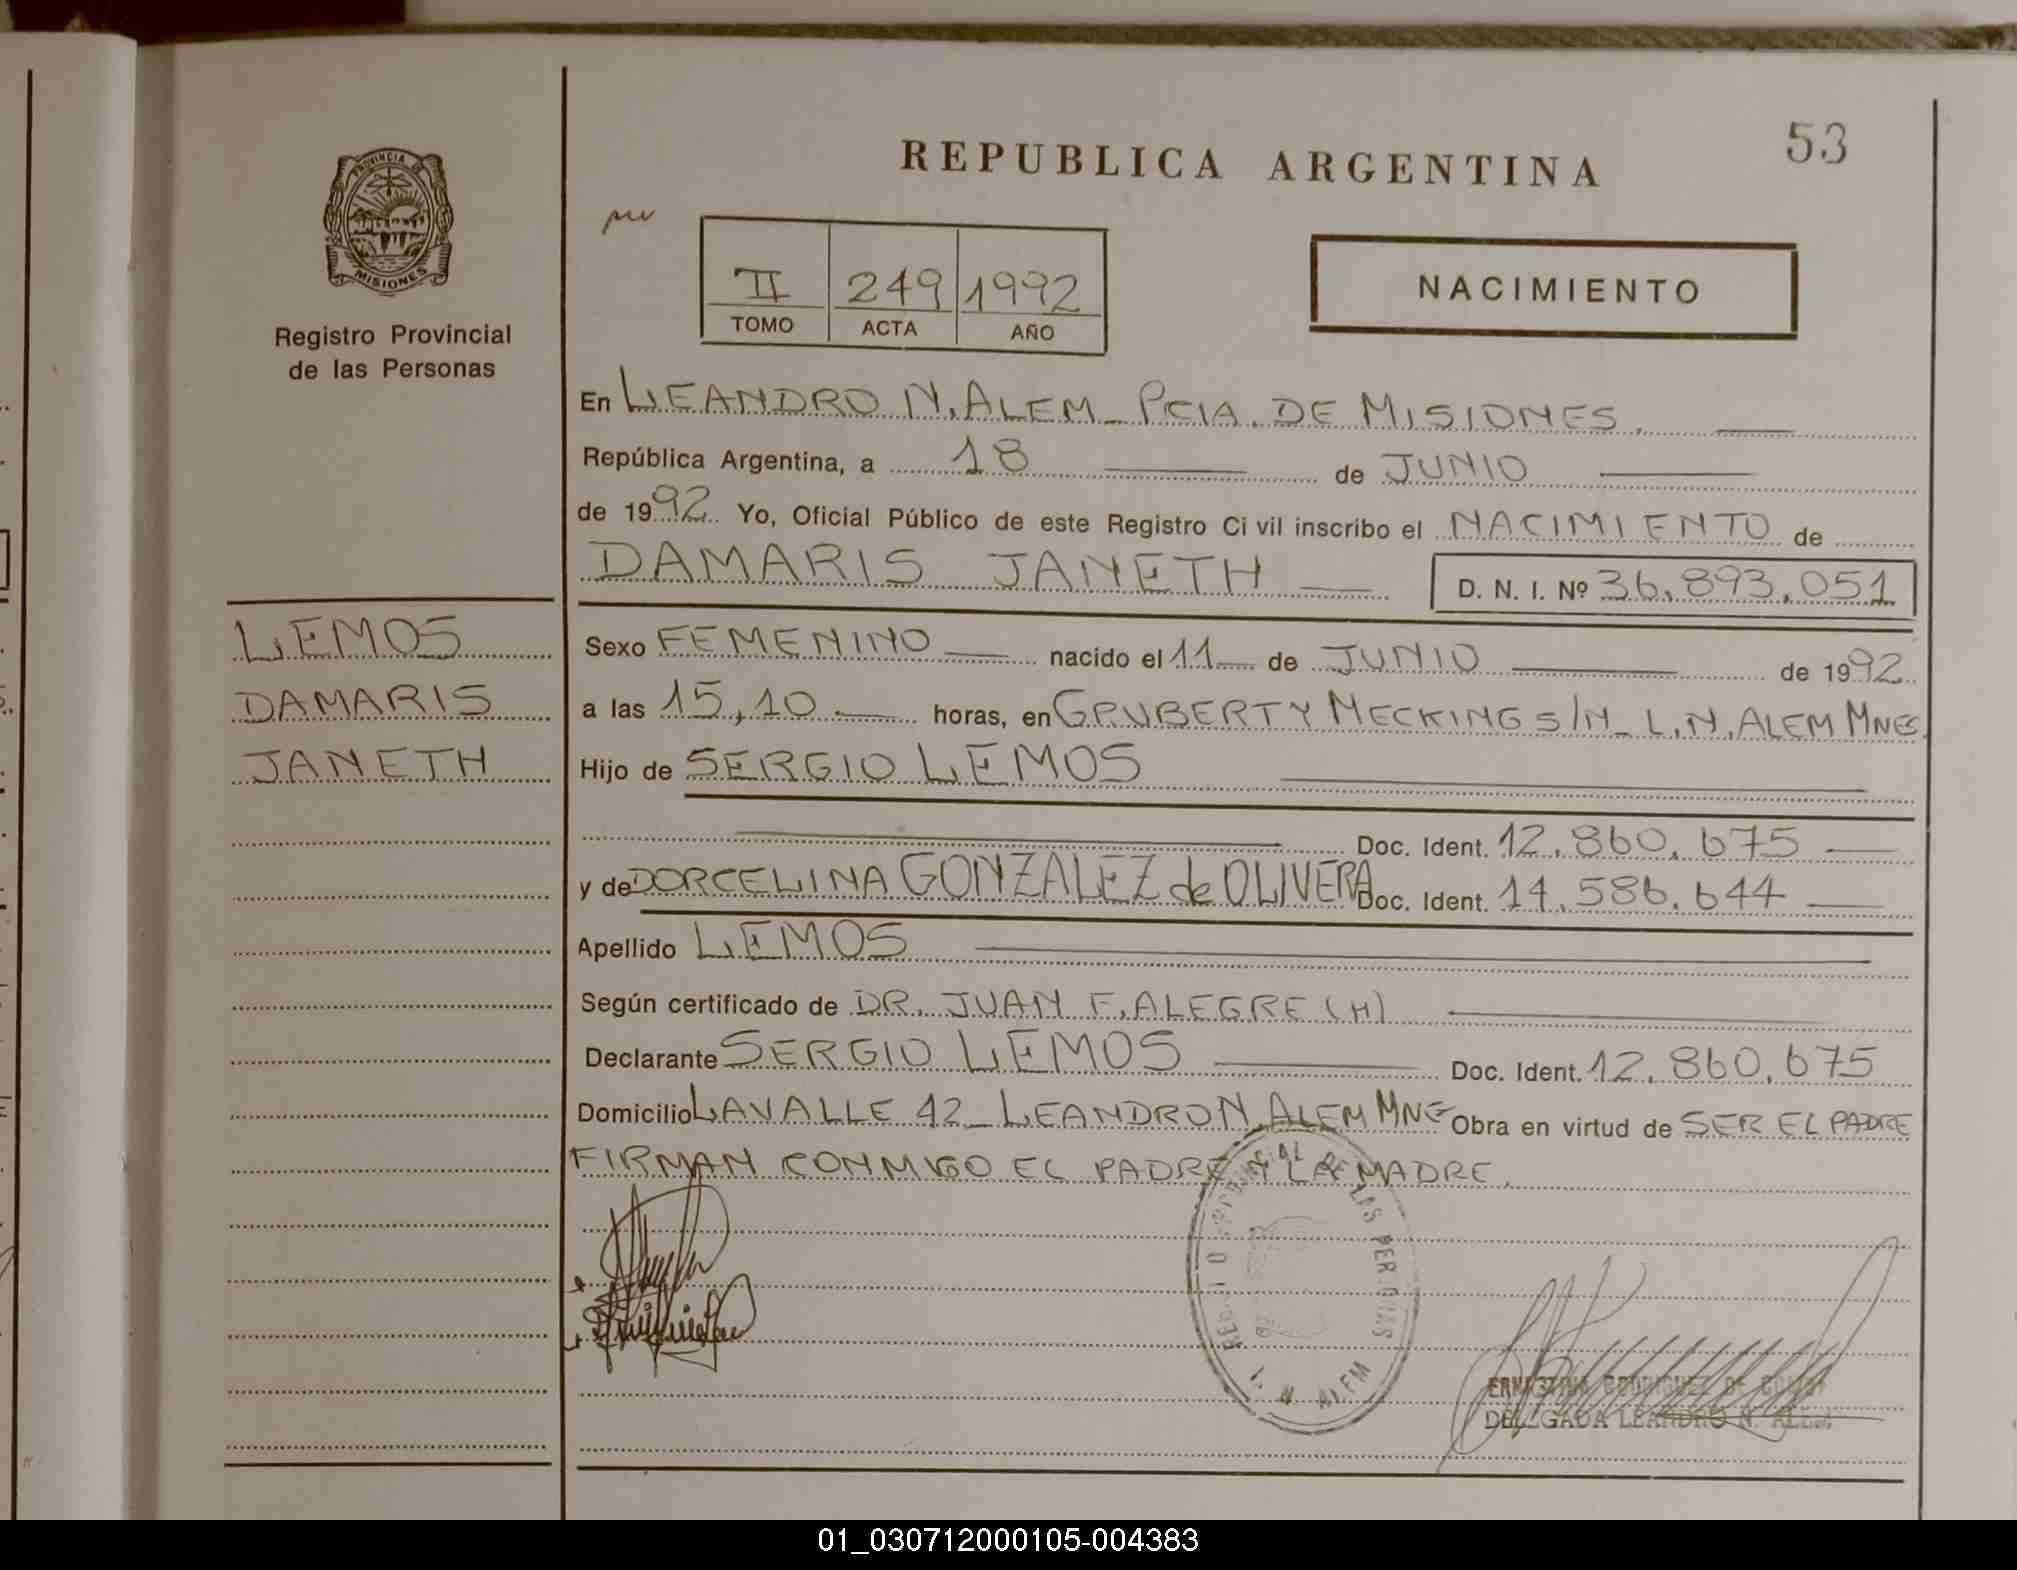 53
REPUBLICA ARGENTINA
PROVINCIA DE
MISIONES
Registro Provincial
de las Personas
II 249 1992
TOMO ACTA AÑO
NACIMIENTO
En LEANDRO N. ALEM_ PCIA. DE MISIONES.
República Argentina, a 18 de JUNIO
de 1992 Yo, Oficial Público de este Registro Ci vil inscribo el NACIMIENTO de
DAMARIS JANETH D. N. I. Nº 36.893.051
LEMOS
DAMARIS
JANETH
Sexo FEMENINO nacido el 11 de JUNIO de 1992
a las 15,10 horas, en GRUBERT Y MECKING S/N_ L.N. ALEM MNES.
Hijo de SERGIO LEMOS
Doc. Ident. 12.860.675
y de DORCELINA GONZALEZ de OLIVERA Doc. Ident. 14.586.644
Apellido LEMOS
Según certificado de DR. JUAN F. ALEGRE (H)
Declarante SERGIO LEMOS Doc. Ident. 12.860.675
Domicilio LAVALLE 42_ LEANDRO N. ALEM MNE Obra en virtud de SER EL PADRE
FIRMAN CONMIGO EL PADRE Y LA MADRE.
REGISTRO PROVINCIAL DE LAS PERSONAS
L. N. ALEM
RODRIGUEZ DE
DELEGADA LEANDRO N. ALEM
01_030712000105-004383